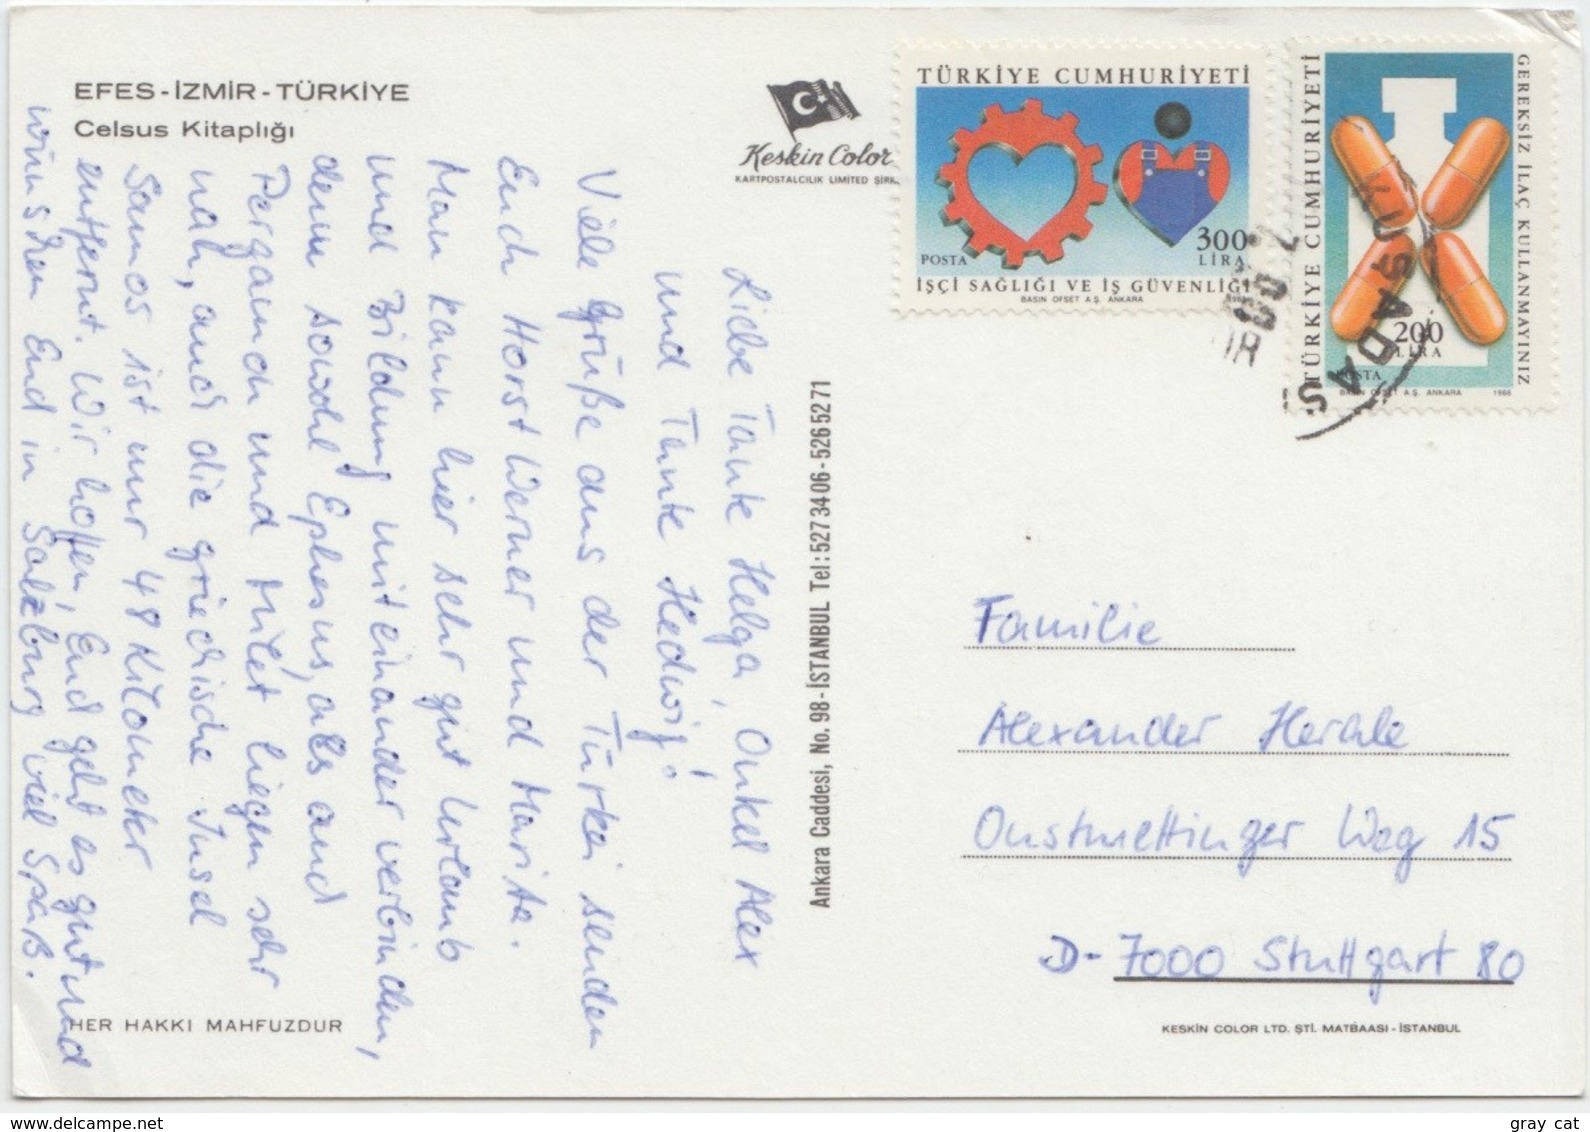 EFES - İZMİR - TÜRKİYE
Celsus Kitaplığı
Keskin Color
KARTPOSTALCILIK LIMITED ŞİRK
TÜRKİYE CUMHURİYETİ
300
LİRA
POSTA
İŞÇİ SAĞLIĞI VE İŞ GÜVENLİĞİ
BASIN OFSET A.Ş. ANKARA
TÜRKİYE CUMHURİYETİ
GEREKSİZ İLAÇ KULLANMAYINIZ
200
LİRA
POSTA
BASIN OFSET A.Ş. ANKARA 1988
KUŞADAS
Liebe Tante Helga, Onkel Alex
und Tante Hedwig!
Viele Grüße aus der Türkei senden
Euch Horst Werner und Marita.
Man kann hier sehr gut Urlaub
und Bildung miteinander verbinden,
denn sowohl Ephesus, als auch
Pergamon und Milet liegen sehr
nah, auch die griechische Insel
Samos ist nur 48 Kilometer
entfernt. Wir hoffen, Euch geht es gut und
wünschen Euch in Salzburg viel Spaß.
Ankara Caddesi, No. 98 - İSTANBUL Tel: 527 34 06 - 526 52 71
Familie
Alexander Herdle
Onstmettinger Weg 15
D-7000 Stuttgart 80
HER HAKKI MAHFUZDUR
KESKIN COLOR LTD. ŞTİ. MATBAASI - İSTANBUL
www.delcampe.net
gray cat